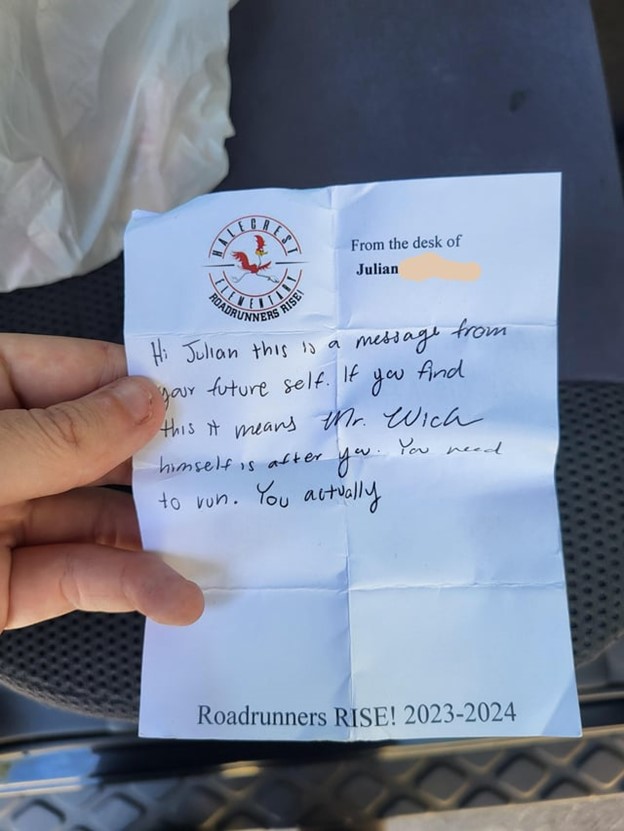 HALECREST
ELEMENTARY
ROADRUNNERS RISE!
From the desk of
Julian
Hi Julian this is a message from
your future self. If you find
this it means Mr. Wick
himself is after you. You need
to run. You actually
Roadrunners RISE! 2023-2024